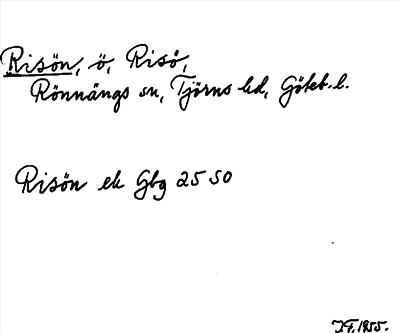 Risön, ö, Risö,
Rönnängs sn, Tjörns hd, Göteb. l.
Risön ek Gbg 25 SO
1955.